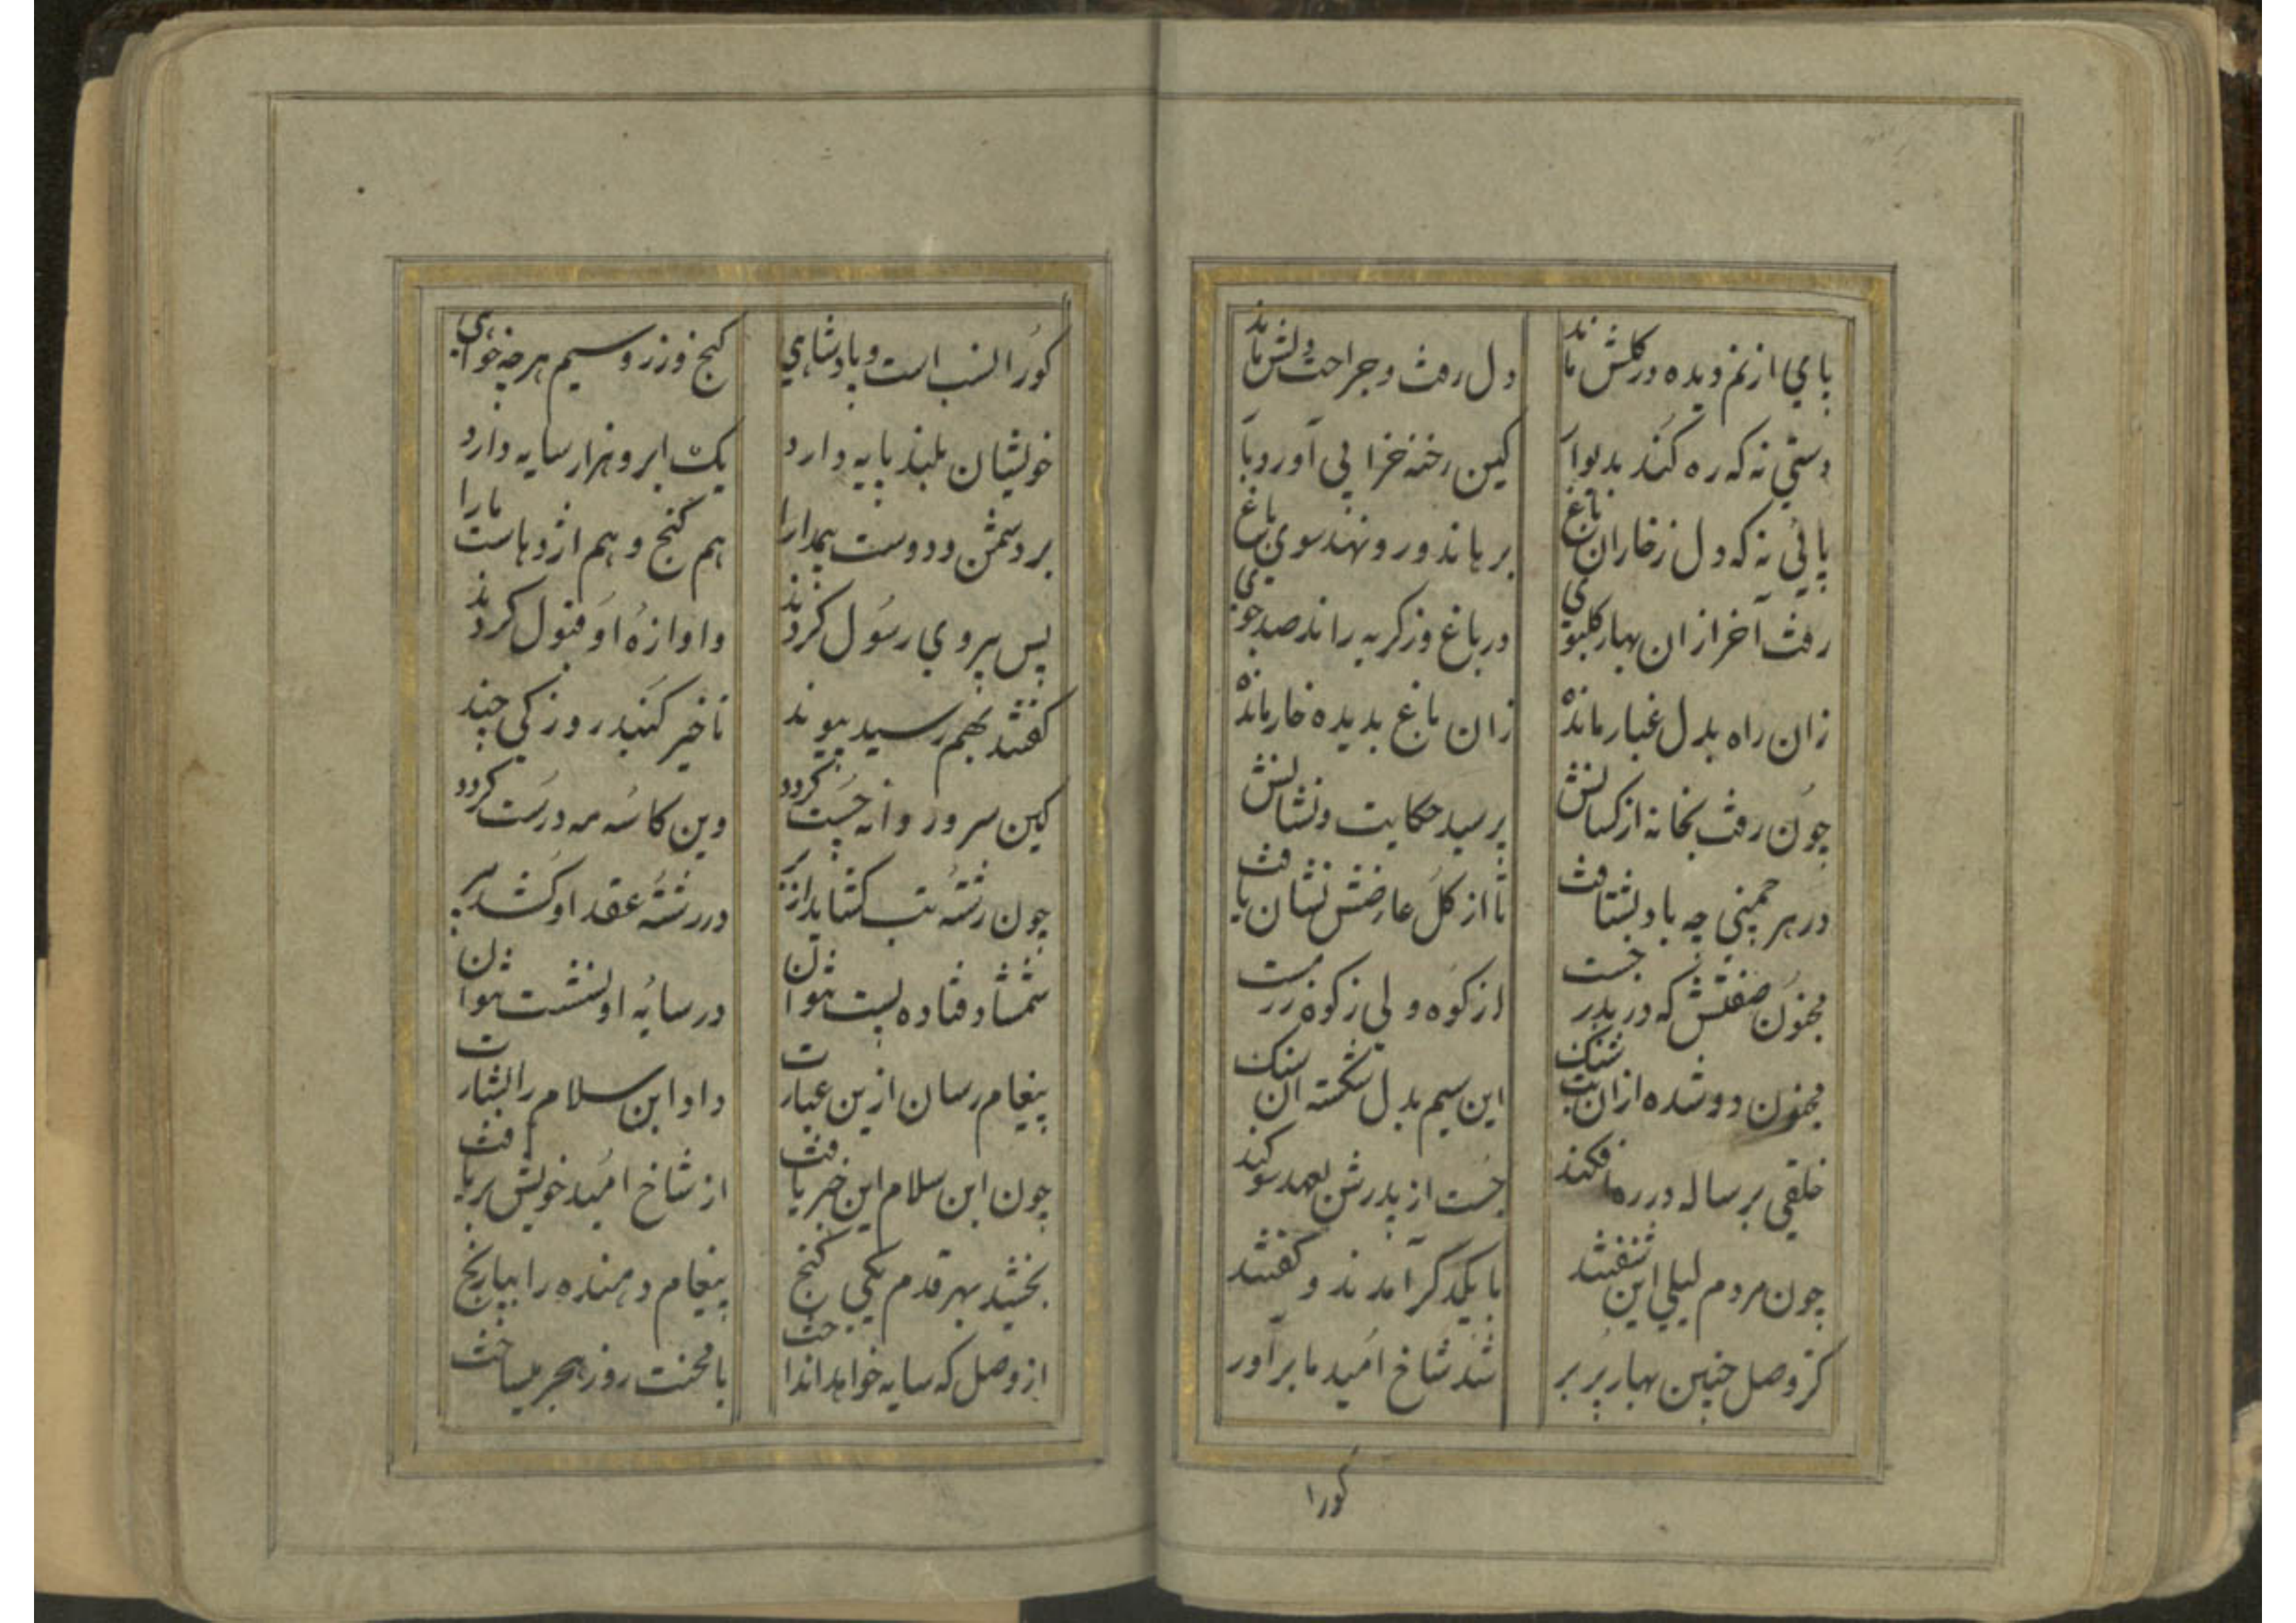 پای از نم دیده در کلش ماند دل رفت و جراحت دلش ماند
دستی نه که ره کند بدیوار کین رخنه خزانی آورد بار
پائی نه که دل ز خاران باغ برهاند و رو نهد سوی باغ
رفت آخر ازان بهار کلبوی در باغ وز کریه راند صد جوی
زان راه بدل غبار مانده زان باغ بدیده خار مانده
چون رفت بخانه از کسانش پرسید حکایت و نشانش
در هر چمنی چه باد بشتافت تا از کل عارضش نشان یافت
مجنون صفتش که در بدر جست از کوه ولی زکوة زر
مجنون دو شده ازان بت شنک این سیم بدل شکسته آن سنک
خلقی برساله در ره افکند جست از پدرش بعهد سوکند
چون مردم لیلی این شنفتند با یکدکر آمدند و کفتند
کز وصل چنین بهار پر بر شد شاخ امید ما برآور
کورا
کورا نسب است و پادشاهی کنج و زر و سیم هرچه خواهی
خویشان بلند پایه دارد یک ابر و هزار سایه دارد
بر دشمن و دوست بیمدارا هم کنج و هم اژدهاست مارا
پس پیروی رسول کردند و آوازه او قبول کردند
کفتند بهم رسید پیوند تاخیر کنید روزکی چند
کین سرو روانه چست کردد وین کاسه مه درست کردد
چون رشته تب کشاید از بر در رشته عقد او کشد سر
شمشاد فتاده پست نتوان در سایه او نشست نتوان
پیغام رسان ازین عبارت داد ابن سلام را بشارت
چون ابن سلام این خبر یافت از شاخ امید خویش بر یافت
بخشید بهر قدم یکی کنج پیغام دهنده را بپا رنج
از وصل که سایه خواهد انداخت با محنت روز هجر میساخت